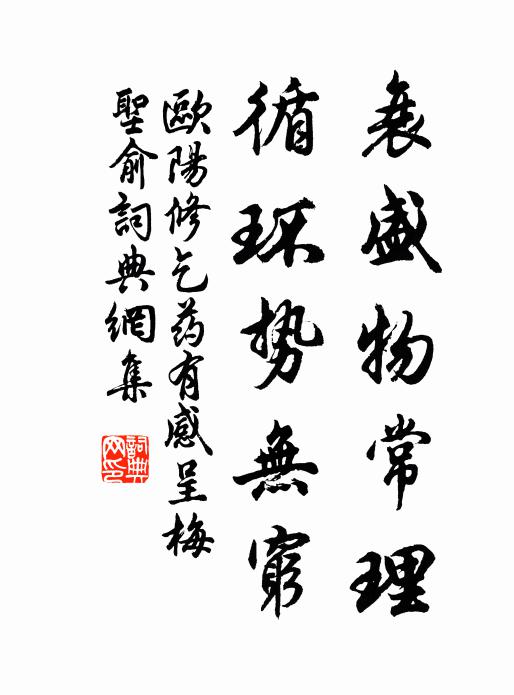 衰盛物常理
循环势無窮
歐陽修乞药有感呈梅
聖俞詞典網集
詞典网印